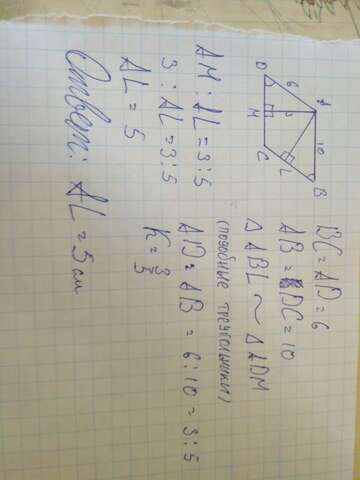 A
6
3
10
D
M
C
L
B
BC = AD = 6
AB = DC = 10
Δ ABL ~ Δ ADM
(подобные треугольники)
AD : AB = 6 : 10 = 3 : 5
K = 3/5
AM : AL = 3 : 5
3 : AL = 3 : 5
AL = 5
Ответ: AL = 5 см